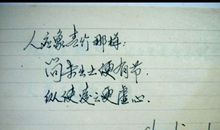 人应象青竹那样:
尚未出土便有节
纵使凌云便虚心.